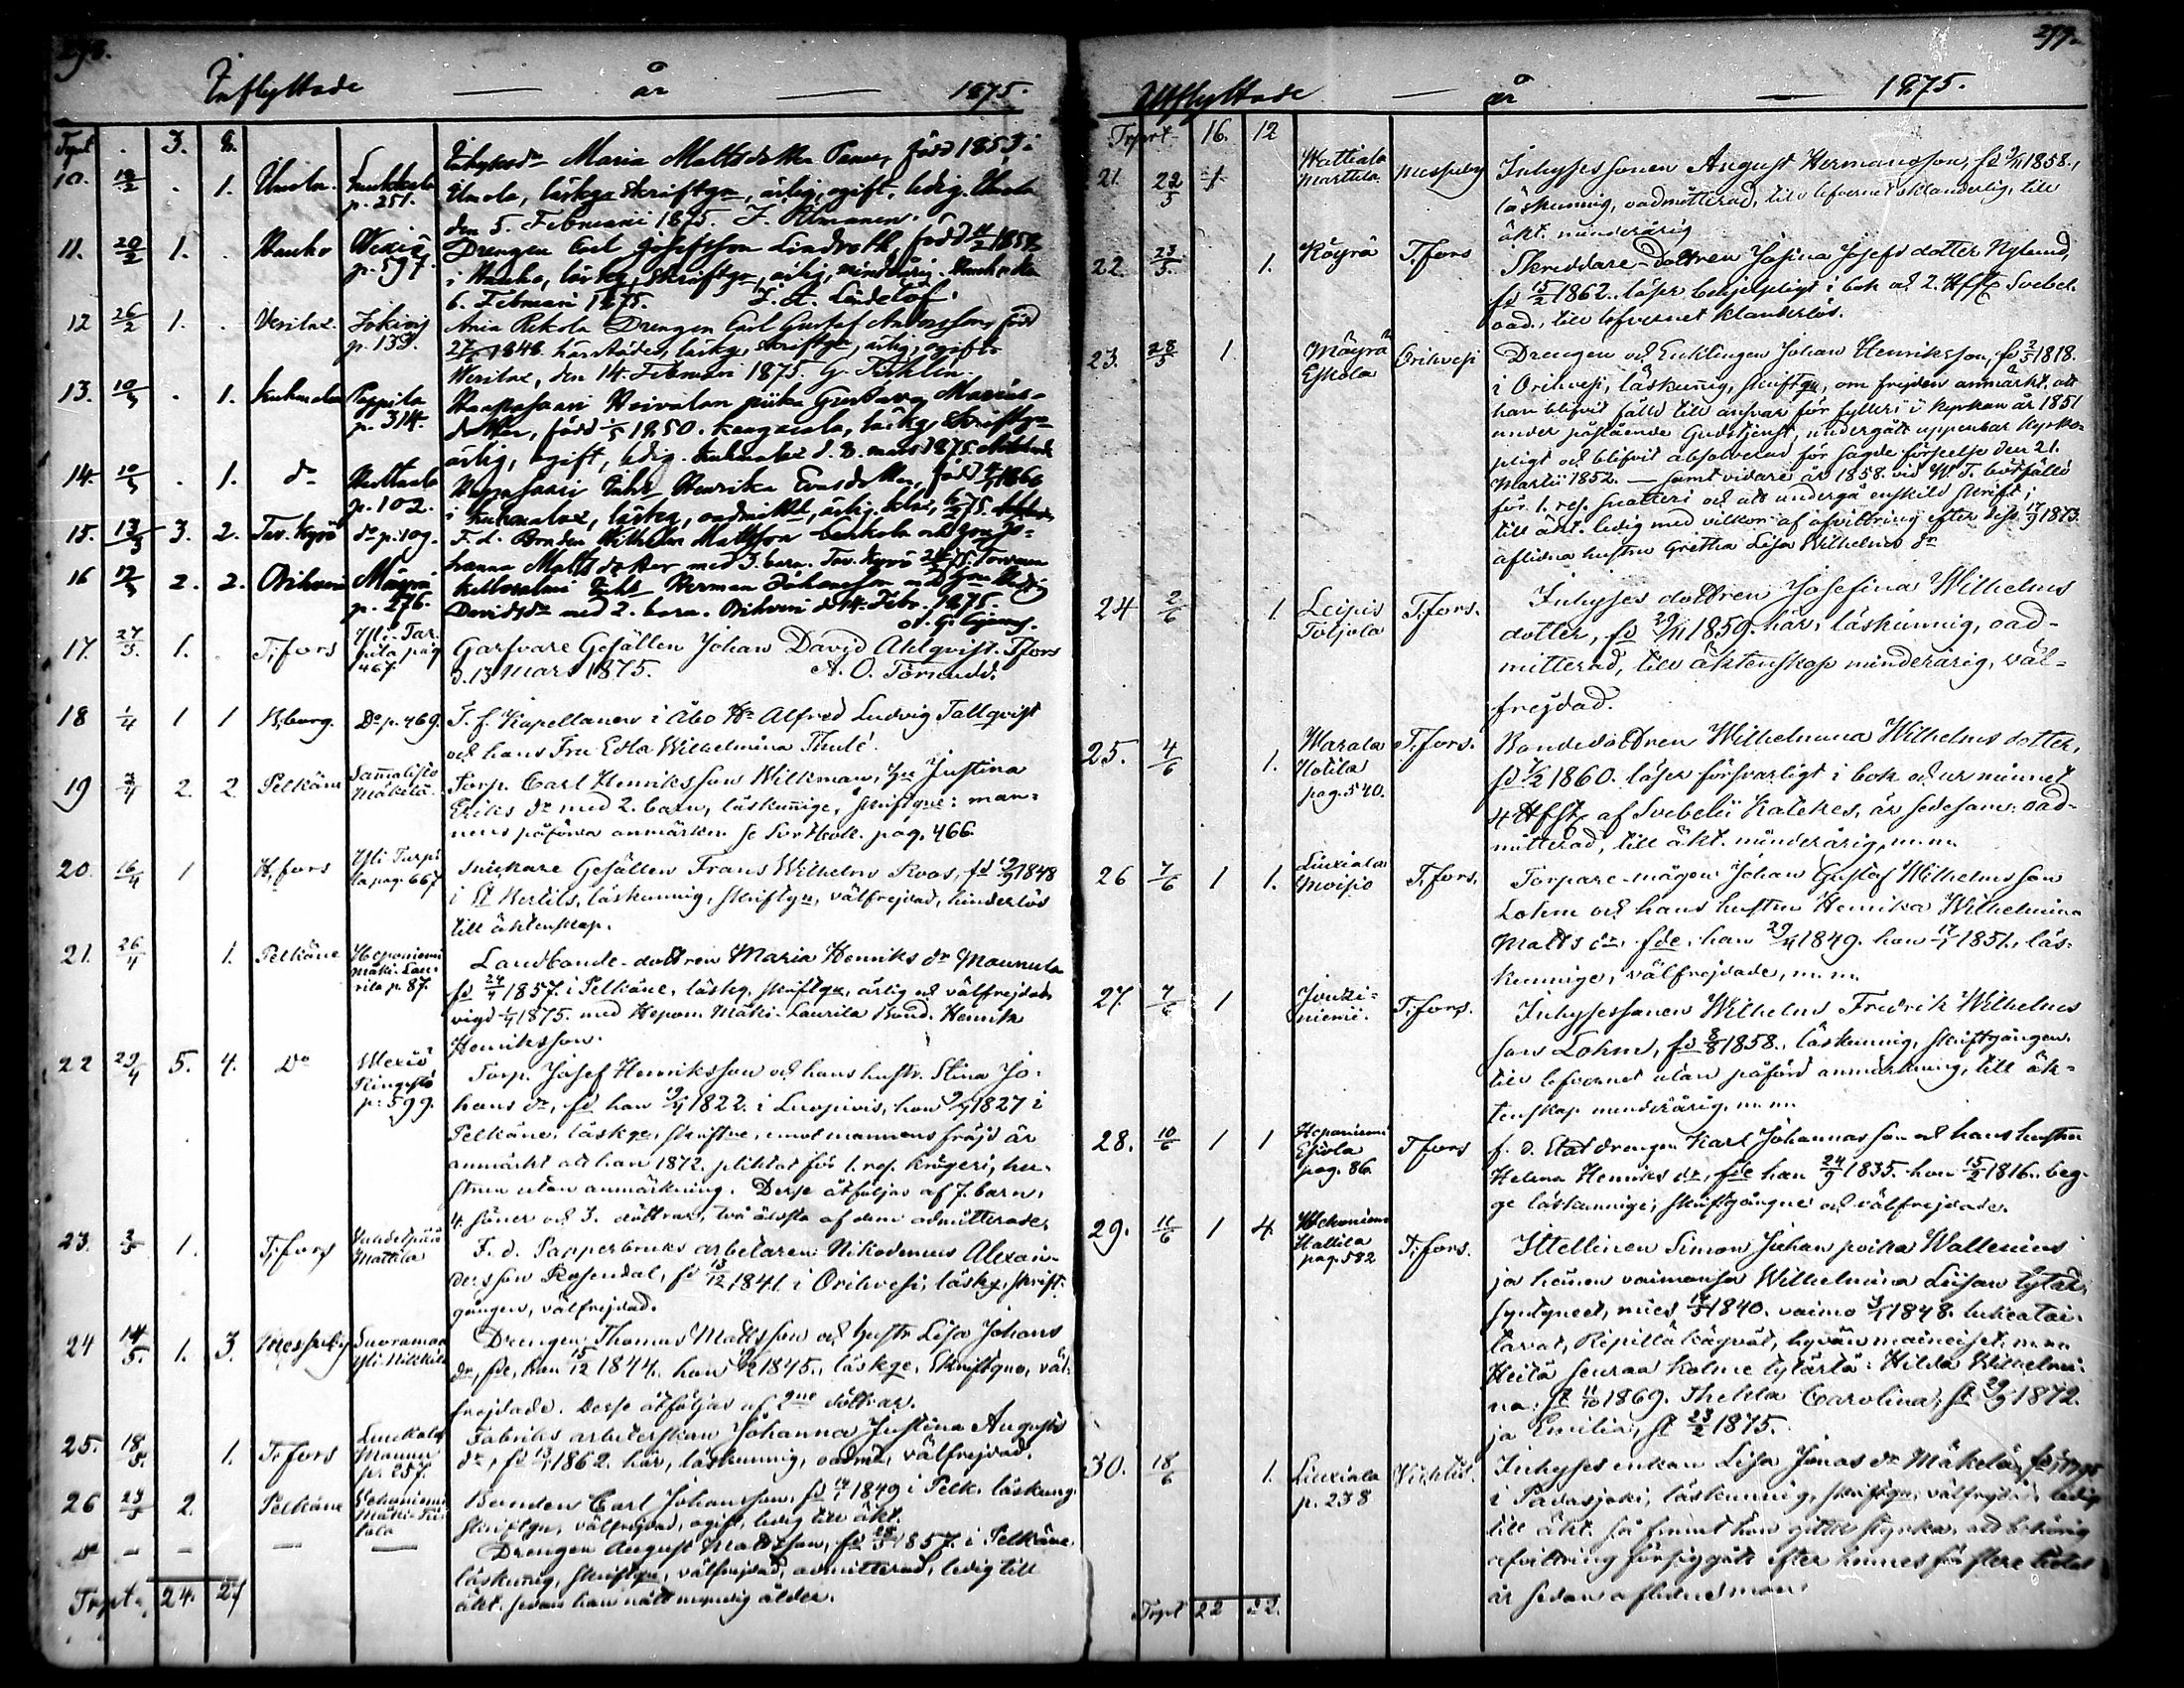 298.
Inflyttade — år — 1875.
Trpt . 3. 8.
10. 19/2 . 1. Umola Luukkala p. 251. Inhyses dr Maria Matts dotter född 1853 i
Umola, läskg skriftgn, ärlig, ogift, ledig. Umola
den 5. Februari 1875.
11. 20/2 1. . Hauho Wexiö p. 597. Drengen Carl Josefsson Lindroth, född 11/2 1857
i Hauho, läskg, skriftgn, ärlig, minderårig. Hauho den
6. Februari 1875. Lindelöf.
12 26/2 1. . Vesilax. Jokiois p. 139. Rekola Drengen Carl Gustaf Andersson, född
1848 härstädes, läskg, skriftgn, ärlig, ogift.
Wesilax, den 14. Februari 1875. G. Päthlin.
13. 10/3 . 1. Kuhmalax Pappila p. 314. Haapasaari Hoivalan piika Gustava Marias
dotter, född 1850. Kangasala, läskg, skriftgn
ärlig, ogift, ledig. Kuhmalax d. 8. mars 1875.
14. 10/3 . 1. do Wuttaala p. 102. Haapasaari Inhs Henrika Evas dotter, född 1860
i Kuhmalax, läskg, oadmitt, ärlig.
15. 13/3 3. 2. Tav. Kyrö do p. 109. F. d. Bonden Wilhelm Mattsson
hanna Matts dotter med 3. barn. Tav. Kyrö
16 17/3 2. 2. Orihvesi Mäyrä p. 276. Inhs Herman Johansson
Davids dr med 2. barn. Orihvesi d. 14. Febr. 1875.
17. 27/3. 1. . T:fors Yli-Tarpila pag 467 Garfvare Gesällen Johan David Ahlqvist. Tfors
d. 13 Mars 1875. A. O. Törnudd.
18 1/4 1 1 H:borg. Do p. 469. T. f. Kapellanen i Åbo Hr Alfred Ludvig Tallqvist
och hans Fru Edla Wilhelmina Thulé.
19 3/4 2. 2 Pelkäne Sammalisto Mäkelä. Torp. Carl Henriksson Wilkman, hu Justina
Eriks dr med 2. barn, läskunnige, skriftgne: man-
nens påförda anmärkn. se pag. 466.
20. 16/4 1 H:fors Yli Tarpila pag. 667 Snickare Gesällen Frans Wilhelm Roos, fd 19/9 1848
i St Bertils, läskunnig, skriftgn, välfrejdad, hinderlös
till äktenskap.
21. 26/4 1. Pelkäne Heponiemi Mäki-Laurila p. 87. Landbonde-dottren Maria Henriks dr Maunula
fd 24/4 1857. i Pelkäne, läskg. skriftgn, ärlig och välfrejdad
vigd 1875. med Hepom. Mäki-Laurila Bond. Henrik
Henriksson.
22 29/4 5. 4. Do Wexiö Ringstö p. 599. Torp. Josef Henriksson och hans hustr. Stina Jo-
hans dr, fd han 19/4 1822. i Luopiois, hon 1827 i
Pelkäne, läskge, skriftne, emot mannens frejd är
anmärkt att han 1872. pliktat för 1. res. krögeri, hu-
strun utan anmärkning. Desse åtföljas af 7. barn,
4. söner och 3. döttrar, två äldsta af dem admitterade.
23. 3/5 1. T:fors Mattila F. d. Papperbruks arbetaren Nikodemus Alexan-
dersson Rosendal, fd 13/12 1841. i Orihvesi, läskg, skrift-
gången, välfrejdad.
24 14/5. 1. 3. Messuby Suoramaa Yli-Nikkilä Drengen Thomas Mattsson och hustr Lisa Johans
dr, fde, han 15/12 1844. hon 1845., läskge, skriftgne, väl-
frejdade. Desse åtföljas af 2ne döttrar.
25. 18/5. 1. T:fors Luukkala Mannu p. 257. Fabriks arbeterskan Johanna Justina Augusts
dr, fd 13/1 1862. här, läskunnig, oadmd, välfrejdad.
26 23/5 2. Pelkäne Bonden Carl Johansson, fd 1849 i Pelk. läskung
skriftgn, välfrejdad, ogift, ledig till äkt.
do — — — — Drengen August Mattsson, fd 1857. i Pelkäne,
läskunnig, skriftgn, välfrejdad, admitterad, ledig till
äkt. sedan han nått myndig ålder.
Trpt. 24. 27
299.
Utflyttade — år — 1875.
Trport 16. 12
21. 22/5 1. Hattiala Marttila Messuby Inhyses sonen August Hermansson, fd 1858.,
läskunnig, oadmitterad, till lefvernet oklanderlig, till
äkt. minderårig
22. 23/5. 1. Köyrä T:fors Skreddare-dottren Josina Josefs dotter Nylund,
fd 15/2 1862. läser behjelpligt i bok och 2. Hfst Svebel.
oad., till lefvernet klanderlös.
23. 28/5 1. Mäyrä Eskola Orihvesi Drengen och Enklingen Johan Henriksson, fd 2/5 1818.
i Orihvesi, läskunnig, skriftgn, om frejden anmärkt, att
han blifvit fälld till ansvar för fylleri i Kyrkan år 1851
under påstående Gudstjenst, undergått uppenbar Kyrko-
pligt och blifvit absolverad för sagde förseelse den 21.
Martii 1852. — samt vidare år 1858. vid W. T. botfälld
för 1. res. snatteri och att undergå enskild skrift;
till äkt. ledig med vilkor af afvittring efter dess 17/9 1873.
aflidna hustru Gretha Lisa Wilhelms dr
24 2/6 1 Leipis Toljola T:fors. Inhyses dottren Josefina Wilhelms
dotter, fd 29/11 1859. här, läskunnig, oad-
mitterad, till äktenskap minderårig, väl-
frejdad.
25. 4/6 1. Warala Hotila pag. 540. T:fors. Bondedottren Wilhelmina Wilhelms dotter,
fd 1860. läser försvarligt i bok och ur minnet
4 Hfst. af Svebelii Kateches, är sedesam: oad-
mitterad, till äkt. minderårig, m. m.
26 7/6 1 1. Liuxiala Moisio T:fors. Torpare-mågen Johan Gustaf Wilhelmsson
Lohm och hans hustru Henrika Wilhelmina
Matts dr, fde, han 29/4 1849. hon 17/1 1851, läs-
kunnige, välfrejdade, m. m.
27. 7/6 1 Jouki-niemi. T:fors. Inhysessonen Wilhelm Fredrik Wilhelms
son Lohm, fd 8/8 1858., läskunnig, skriftgången,
till lefvernet utan påförd anmärkning, till äk-
tenskap minderårig, m. m.
28. 10/6 1 1 Heponiemi Eskola pag. 86. T fors f. d. Statdrengen Karl Johannasson och hans hustru
Helena Henriks dr, fde han 24/9 1835. hon 15/2 1816. beg-
ge läskunnige, skriftgångne och välfrejdade.
29. 11/6 1 4. Hattila pag. 582 T:fors. Itsellinen Simon Juhan poika Wallenius
ja hänen vaimonsa Wilhelmina Liisan tytär,
syntyneet, mies 1840. vaimo 1848. lukea tai-
tavat, Ripillä käyvät, hyvän maineiset, m. m.
Heitä seuraa kolme tytärtä: Hilda Wilhelmi-
na, st 11/10 1869. Thekla Carolina, st 29/9 1872.
ja Emilia, st 23/2 1875.
30. 18/6 1. Liuxiala p. 238 Inhyses enkan Lisa Jonas dr Mäkelä,
i Padasjoki, läskunnig, skriftgn, välfrejdad, ledig
till äkt. så framt hon gitter styrka, att behörig
afvittring försiggått efter hennes för flere
år sedan aflidne man.
Trpt 22 22.